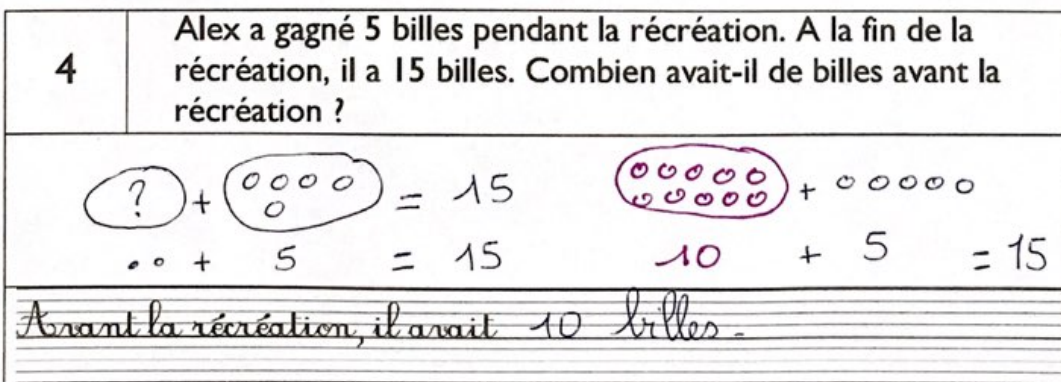 4
Alex a gagné 5 billes pendant la récréation. A la fin de la
récréation, il a 15 billes. Combien avait-il de billes avant la
récréation ?
? + = 15
.. + 5 = 15
+
10 + 5 = 15
Avant la récréation, il avait 10 billes.